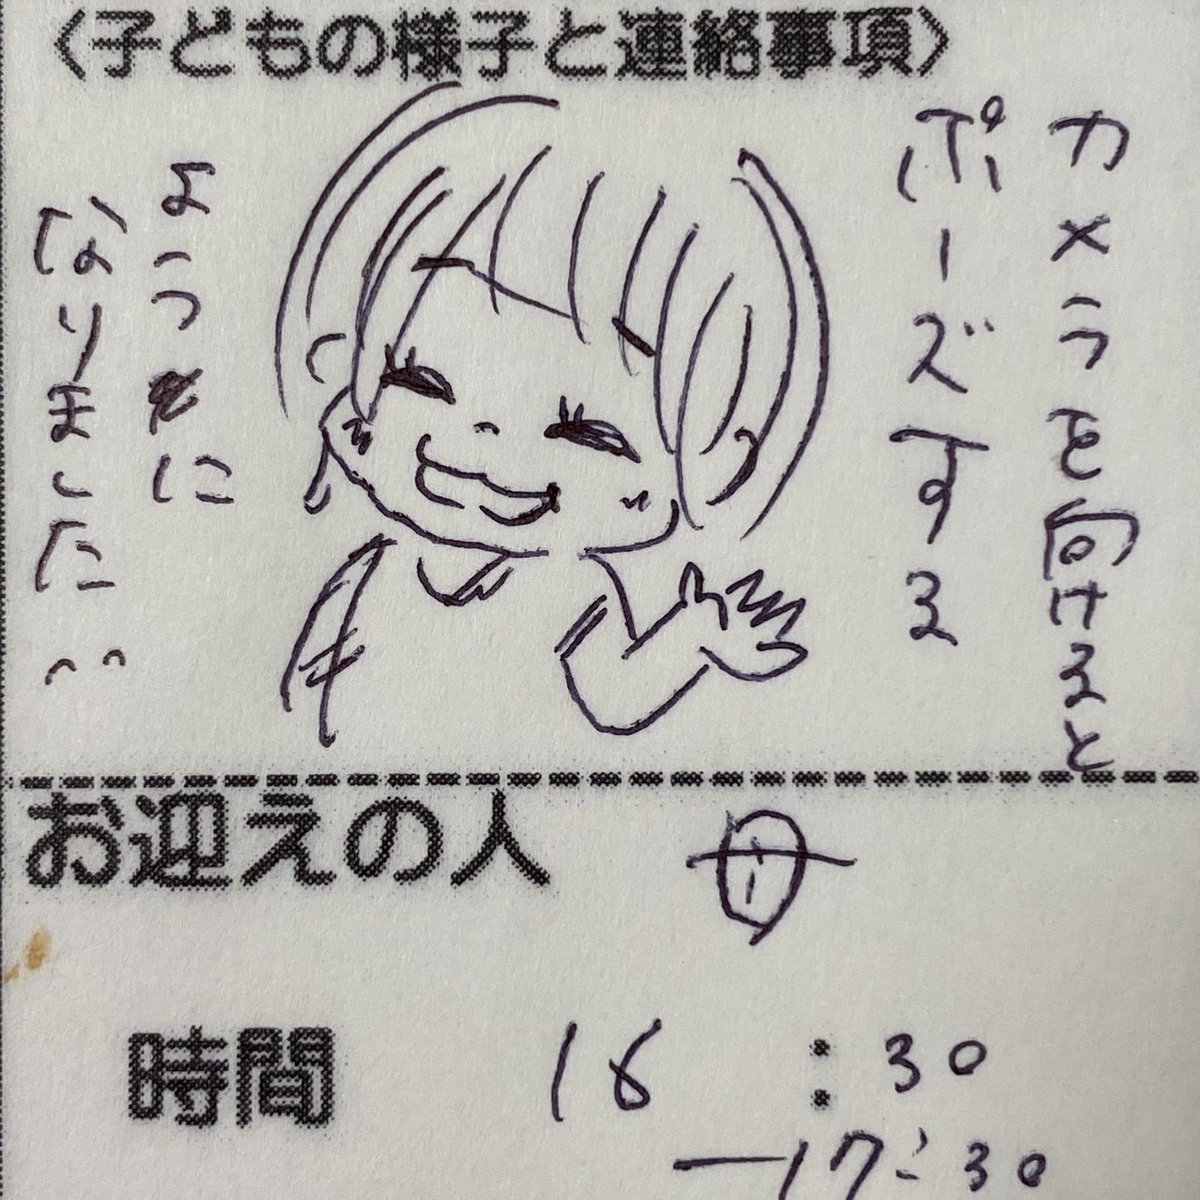 〈子どもの様子と連絡事項〉
カメラを向けると
ポーズする
ように
なりました
お迎えの人
母
時間
16:30
ー17:30